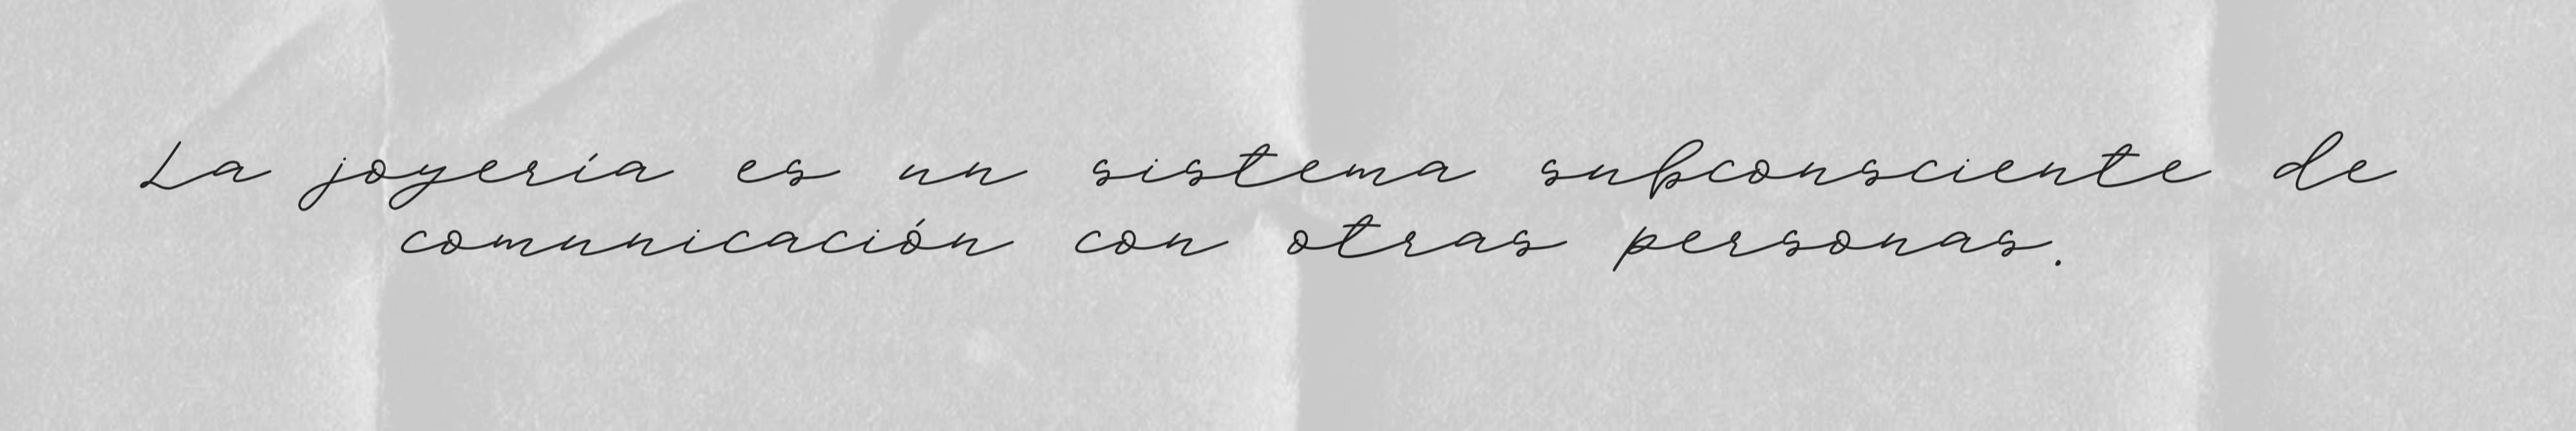 La joyería es un sistema subconsciente de
comunicación con otras personas.